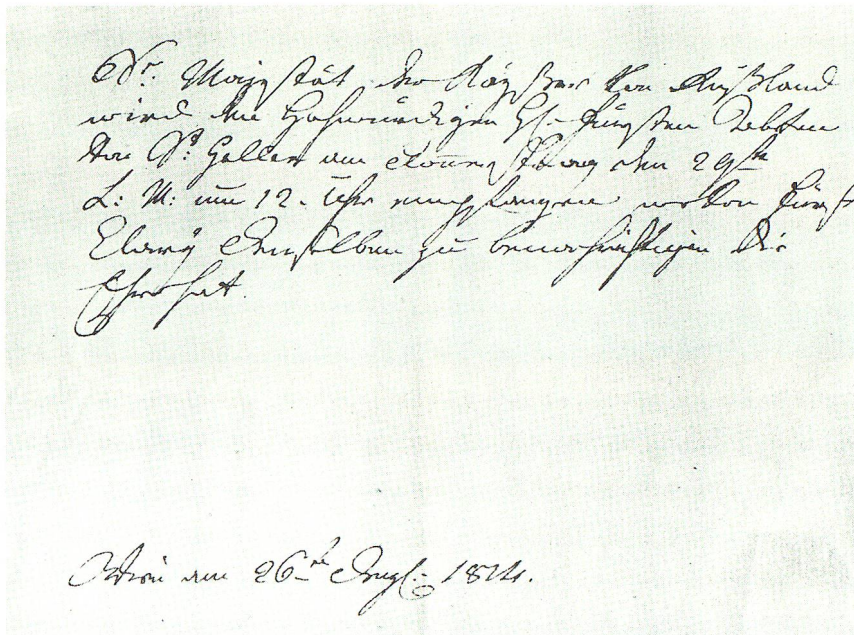 Sr. Majestät der Kayßer von Rußland
wird den Hochwürdigen H: Fürsten Abten
von St. Gallen am Donnerstag den 29ten
d: M: um 12. Uhr empfangen wovon Fürst
Clary denselben zu benachrichtigen die
Ehre hat.
Wien am 26ten 1814.